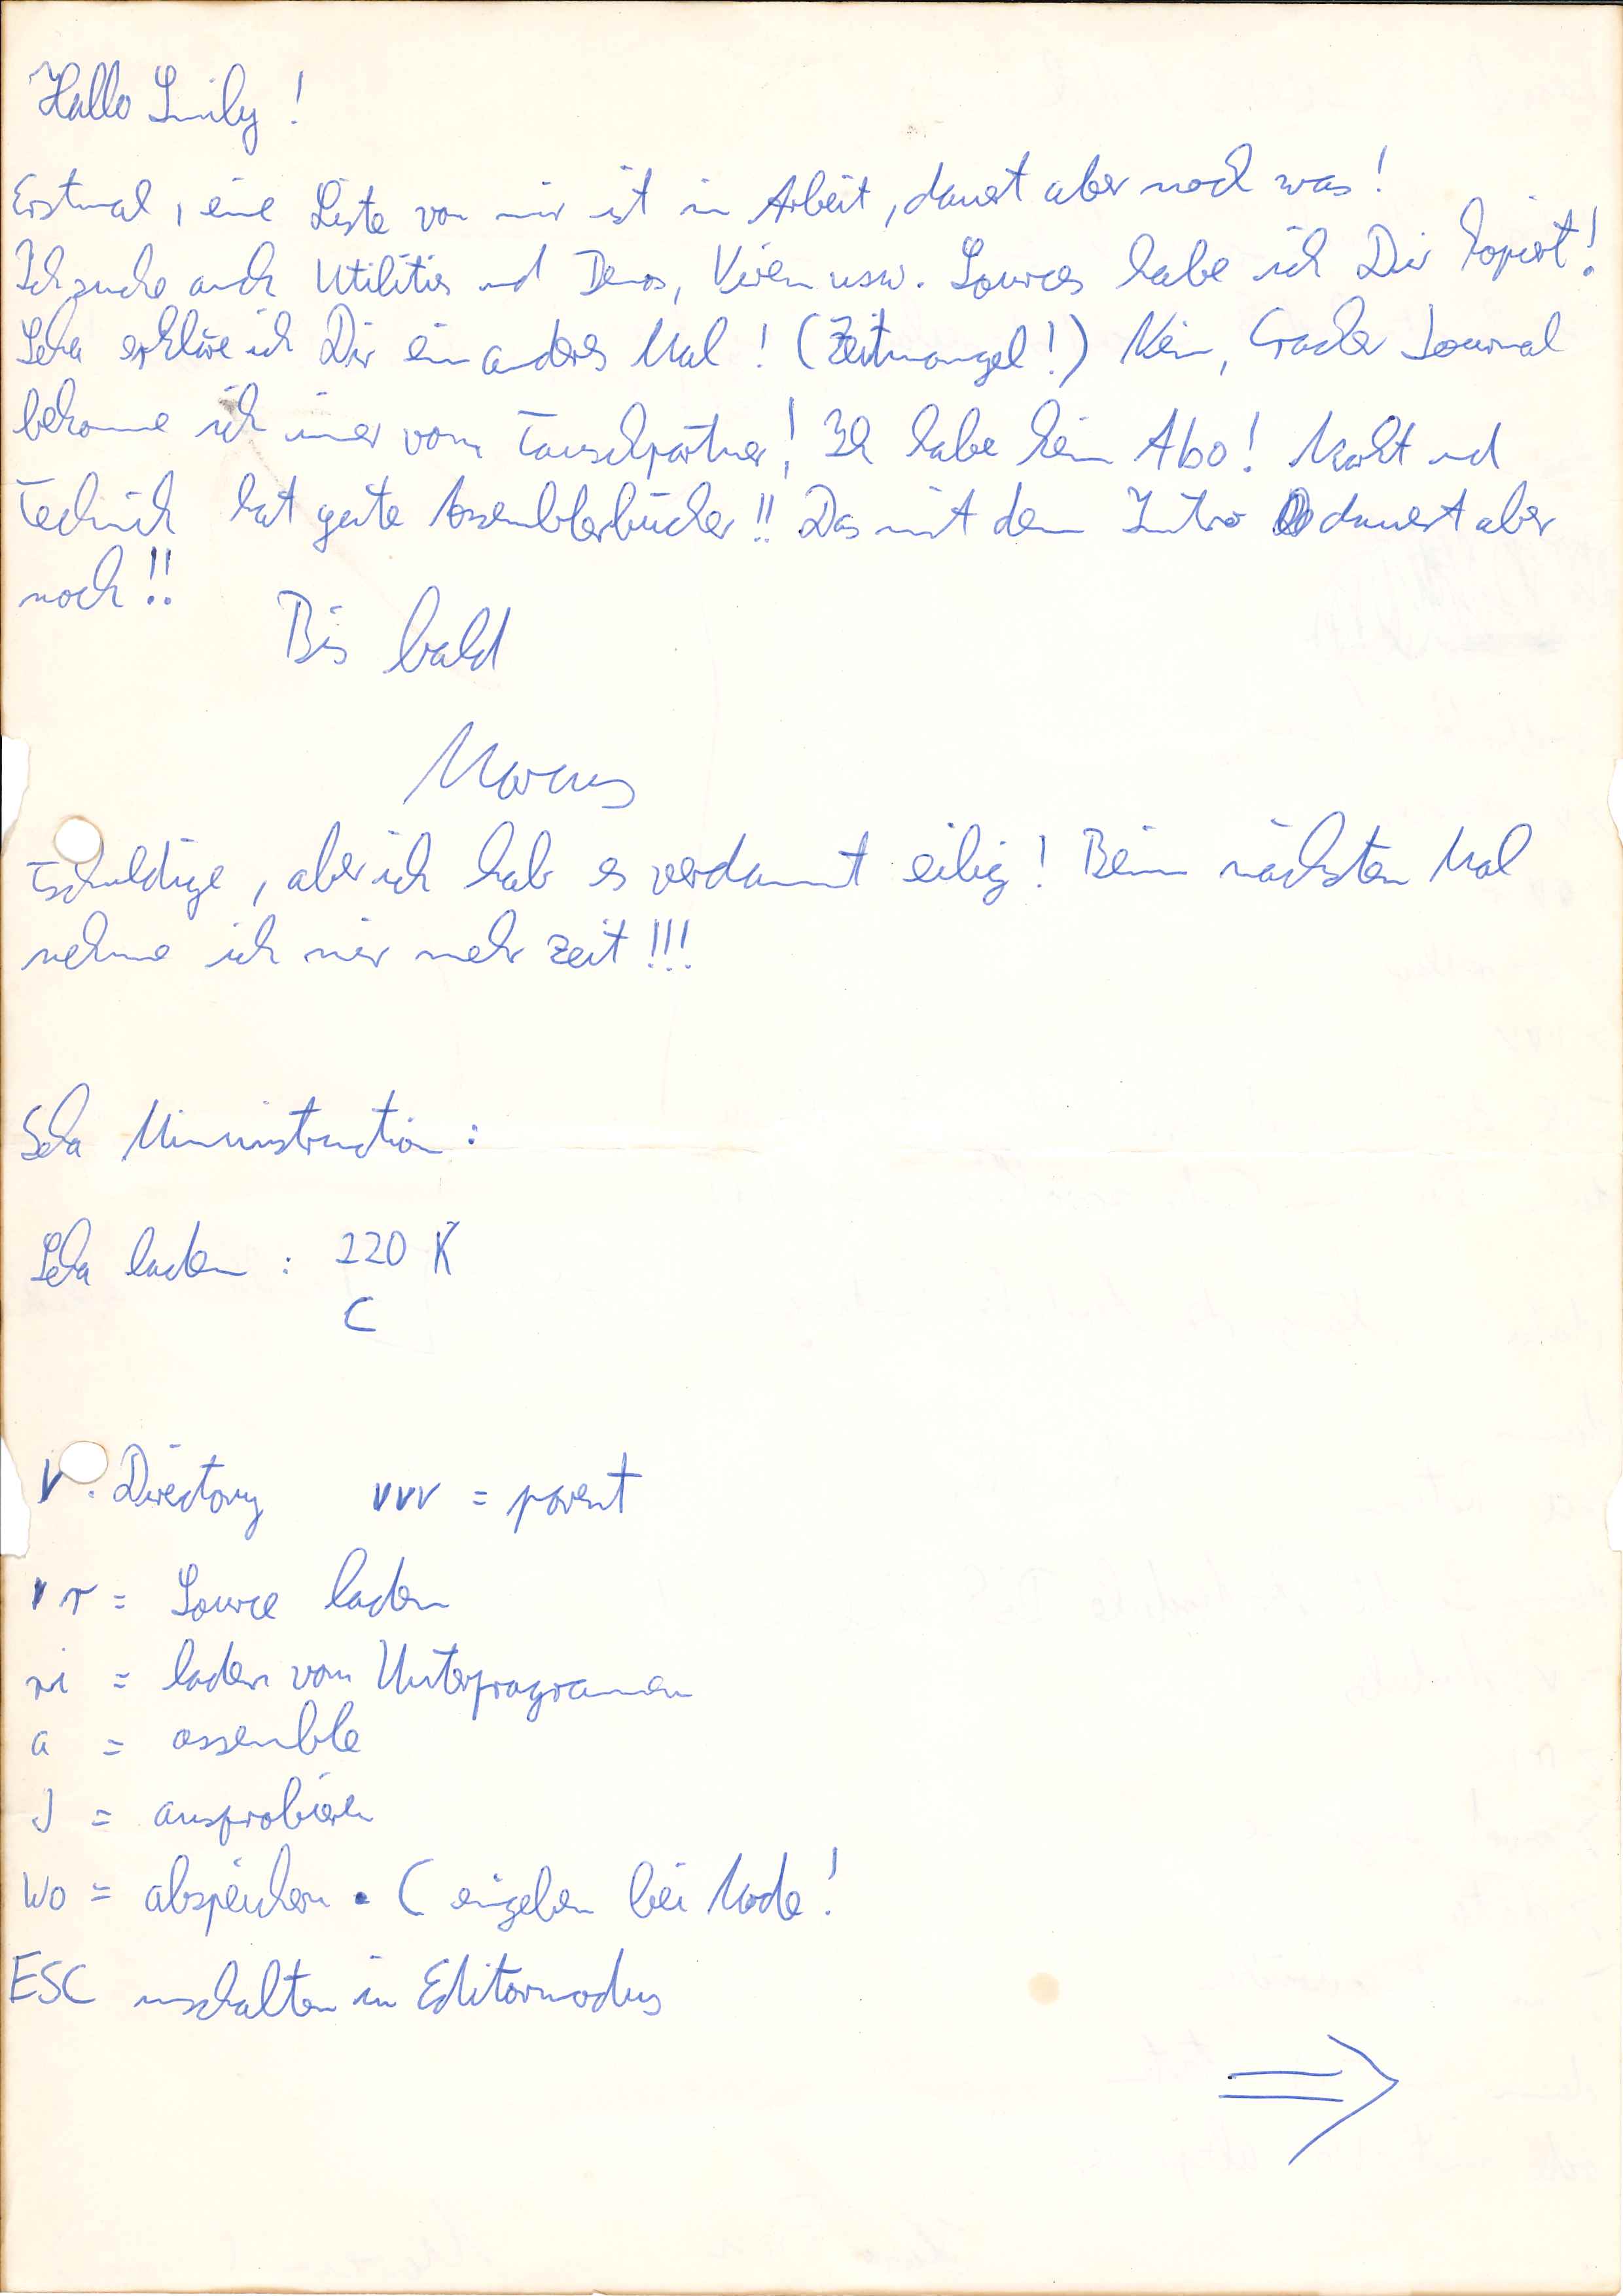 Hallo Smily !
Erstmal, eine Liste von mir ist in Arbeit, dauert aber noch was!
Ich suche auch Utilities und Demos, Viren usw. Sources habe ich Dir kopiert!
Seka erkläre ich Dir ein anderes Mal ! (Zeitmangel!) Nein, Cracker Journal
bekomme ich immer vom Tauschpartner! Ich habe kein Abo! Markt und
Technik hat gute Assemblerbücher!! Das mit dem Intro dauert aber
noch!!
Bis bald
Marcus
Tschuldige, aber ich hab es verdammt eilig! Beim nächsten Mal
nehme ich mir mehr Zeit!!!
Seka Mininstruction :
Seka laden : 220 K
C
V : Directory vvv = parent
r = Source laden
ri = laden von Unterprogrammen
a = assemble
J = ausprobieren
wo = abspeichern . C eingeben bei Mode!
ESC umschalten in Editormodus
⇒